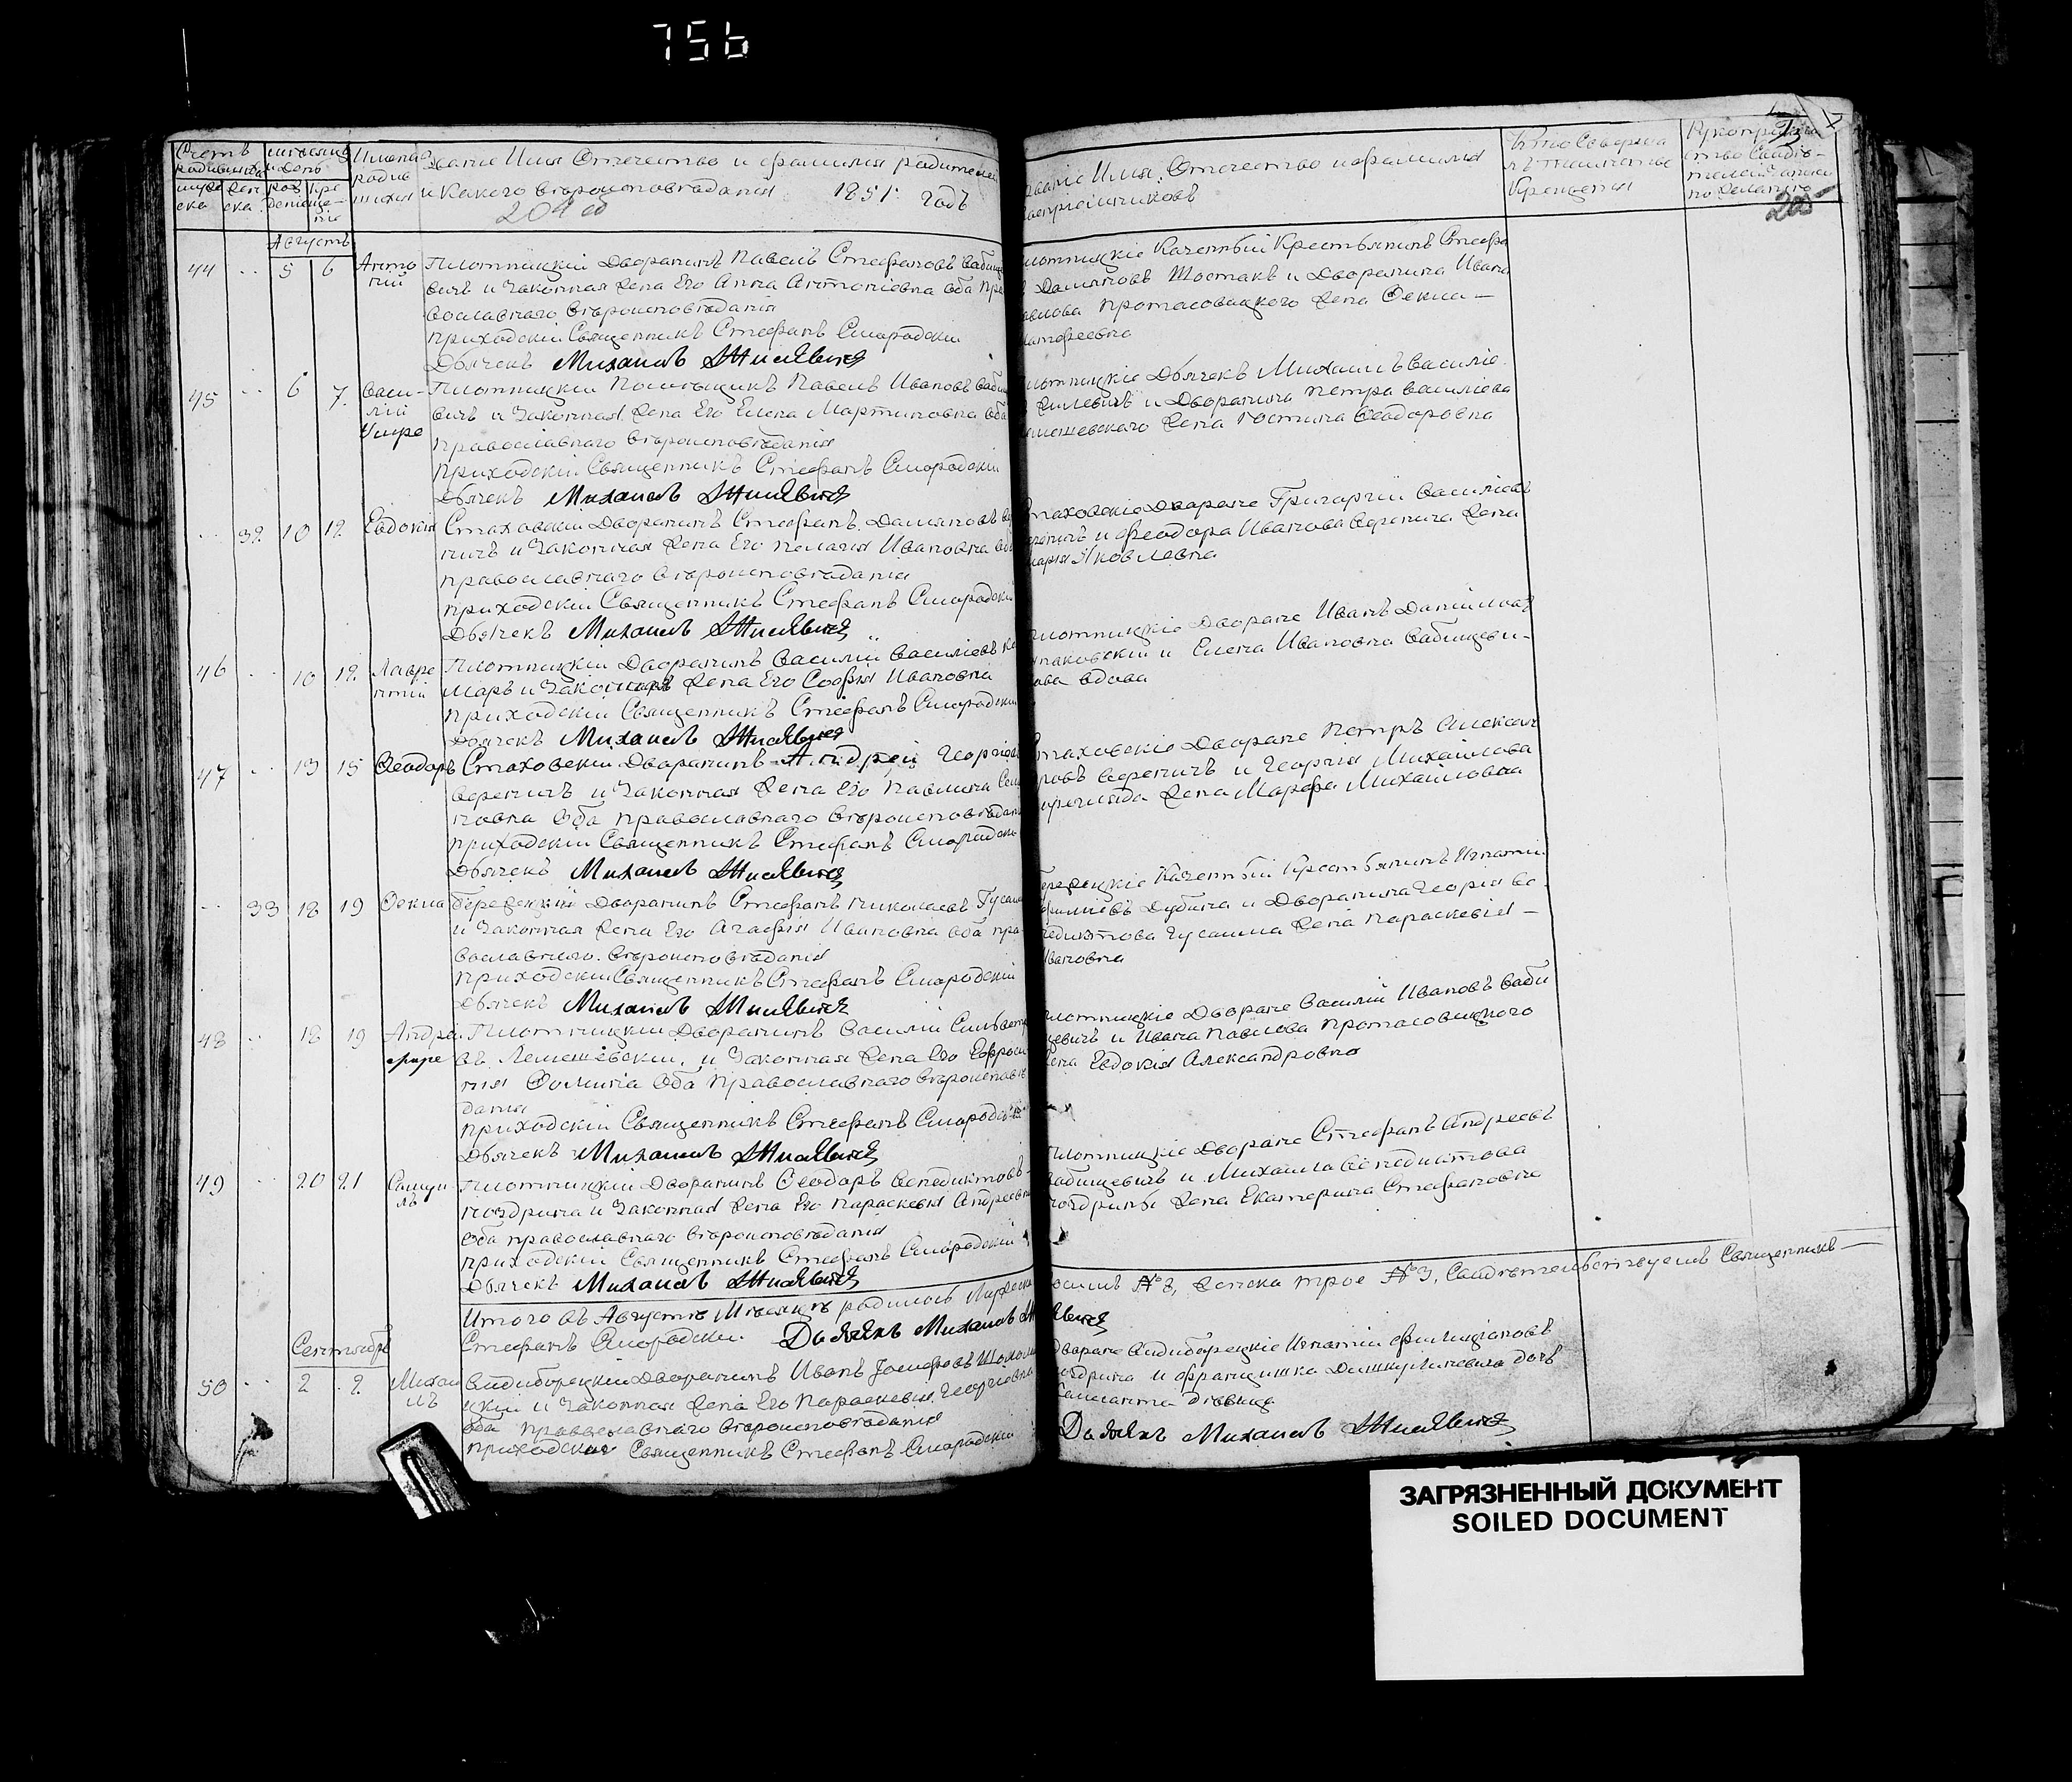 756
Счетъ родившихся
мужеска
женска
месяцъ и день
рождение
крещение
Имена родившихся
Званіе Имя Отечество и фамилия родителей
и Какого вѣроисповѣданія 1851 годъ
204 об
Званіе Имя, Отечество и фамилия
воспріемниковъ
Кто Совершал
Таинство
Крещения
Рукоприкладство Свидѣтелей записи
по желанію
205
Августъ
44 5 6 Антоній
Плотницкій Дворянинъ Павелъ Стефановъ Бабище
вичъ и Законная Жена Его Анна Антоніовна оба Пра
вославнаго вѣроисповѣданія
приходскій Священникъ Стефанъ Смородскій
Дьячекъ Михаилъ Жилевичъ
Плотницкіе Казенный Крестьянинъ Стефа
Даміановъ Шостакъ и Дворянина Ивана
Павлова Протасовицкого Жена Фекла
45 6 7 Василій
Умре
Плотницкій Помѣщикъ Павелъ Ивановъ Баби
вичъ и Законная Жена Его Елена Мартиновна оба
Православнаго вѣроисповѣданія
Приходскій Священникъ Стефанъ Смородскій
Дьячекъ Михаилъ Жилевичъ
Плотницкіе Дьячекъ Михаилъ Василіе
Жилевичъ и Дворянина Петра Василіева
Лемешевскаго Жена Юстина Феодоровна
32 10 12 Евдокія
Стаховскій Дворянинъ Стефанъ Даміановъ Ве
ничъ и Законная Жена Его Пелагія Ивановна оба
православнаго вѣроисповѣданія
приходскій Священникъ Стефанъ Смородскій
Дьячекъ Михаилъ Жилевичъ
Стаховскіе Дворяне Григорій Василіевъ
Вереничъ и Феодора Иванова Веренича Жена
Марія Яковлевна
46 10 12 Лаврентій
Плотницкій Дворянинъ Василій Василіевъ Ко
маръ и Законная Жена Его Софія Ивановна
приходскій Священникъ Стефанъ Смородскій
Дьячекъ Михаилъ Жилевичъ
Плотницкіе Дворяне Иванъ Даніиловъ
и Елена Ивановна Бабищеви-
чова вдова
47 13 15 Феодоръ
Стаховскій Дворянинъ Андрей Георгіевъ
Вереничъ и Законная Жена Его Павлина Семе
новна Оба православнаго вѣроисповѣданія
приходскій Священникъ Стефанъ Смородскій
Дьячекъ Михаилъ Жилевичъ
Стаховскіе Дворяне Петръ Алексан
дровъ Вереничъ и Георгія Михайлова
Жена Марфа Михайловна
33 18 19 Фекла
Бережецкій Дворянинъ Стефанъ Николаевъ Гусаил
и Законная Жена Его Агафія Ивановна оба пра
вославнаго вѣроисповѣданія
приходскій Священникъ Стефанъ Смородскій
Дьячекъ Михаилъ Жилевичъ
Бережецкіе Казенный Крестьянинъ Игнатій
Дубина и Дворянина Георгія Ве
недиктова Жена Параскевія
Ивановна
48 18 19 Андрей
умре
Плотницкій Дворянинъ Василій Сильвестро
въ Лемешевскій, и Законная Жена Его Евфроси
нія Фомина Оба Православнаго вѣроисповѣ
данія
приходскій Священникъ Стефанъ Смородскій
Дьячекъ Михаилъ Жилевичъ
Плотницкіе Дворяне Василій Ивановъ Баби
щевичъ и Ивана Павлова Протасовицкого
Жена Евдокія Александровна
49 20 21 Самуилъ
Плотницкій Дворянинъ Феодоръ Венедиктовъ
Ноздрина и Законная Жена Его Параскевія Андреевна
Оба православнаго вѣроисповѣданія
приходскій Священникъ Стефанъ Смородскій
Дьячекъ Михаилъ Жилевичъ
Плотницкіе Дворяне Стефанъ Андреевъ
Бабищевичъ и Михаила Венедиктова
Ноздрины Жена Екатерина Стефановна
Итого въ Августѣ Мѣсяцѣ родилось Мужеска
восемь №8, Женска трое №3, Свидѣтельствуемъ Священникъ
Стефанъ Смородскій Дьячекъ Михаилъ Жилевичъ
Сентябрь
50 2 2 Михаилъ
Видиборецкій Дворянинъ Иванъ Іосифовъ
цкій и Законная Жена Его Параскевія Георгіовна
Оба Православнаго вѣроисповѣданія
приходскій Священникъ Стефанъ Смородскій
Дворяне Видиборецкіе Игнатій Фелиціановъ
Ноздрина и Францишка дочь
дѣвица
Дьячекъ Михаилъ Жилевичъ
ЗАГРЯЗНЕННЫЙ ДОКУМЕНТ
SOILED DOCUMENT